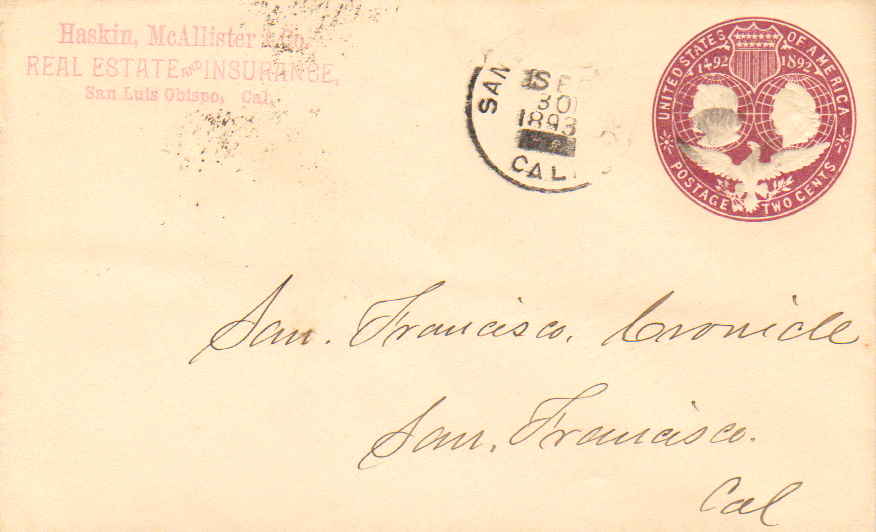 Haskin, McAllister & Co.
REAL ESTATE AND INSURANCE,
San Luis Obispo, Cal.
SAN
SEP
30
1893
CAL
UNITED STATES OF AMERICA
1492 1892
POSTAGE TWO CENTS
San. Francisco. Cronicle
San. Francisco.
Cal